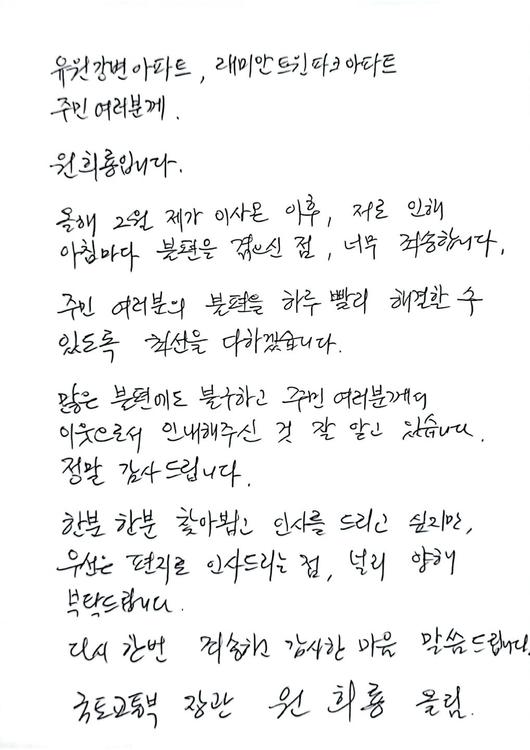 유원강변아파트, 래미안 트윈파크아파트
주민 여러분께.
원희룡입니다.
올해 2월 제가 이사온 이후, 저로 인해
아침마다 불편을 겪으신 점, 너무 죄송합니다.
주민 여러분의 불편을 하루 빨리 해결할 수
있도록 최선을 다하겠습니다.
많은 불편에도 불구하고 주민 여러분께서
이웃으로서 인내해주신 것 잘 알고 있습니다.
정말 감사드립니다.
한분 한분 찾아뵙고 인사를 드리고 싶지만,
우선은 편지로 인사드리는 점, 널리 양해
부탁드립니다.
다시 한번 죄송하고 감사한 마음 말씀드립니다.
국토교통부 장관 원 희 룡 올림.